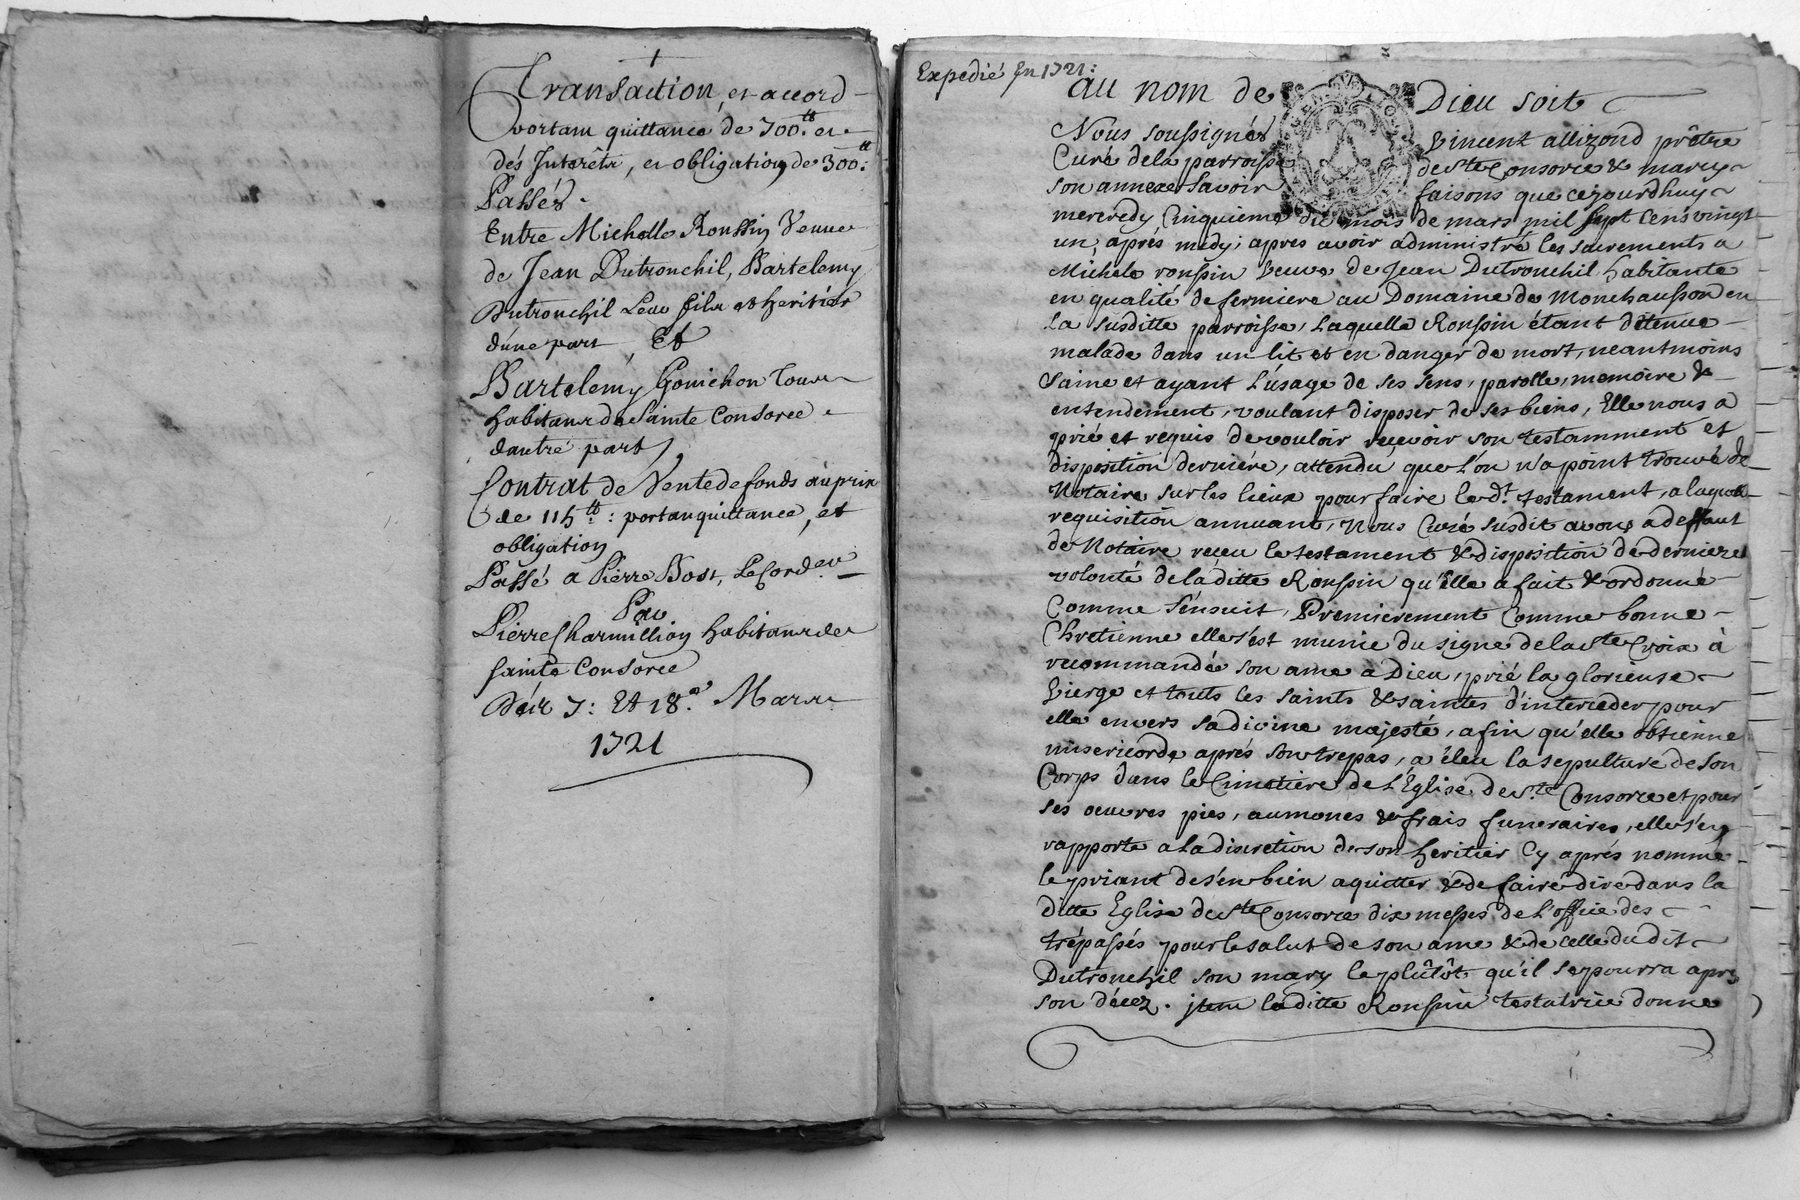 Transaction, et accord
portant quittance de 700.tt et
dés Interêts, et obligation de 300.tt
Passés
Entre Michelle Roussin Veuve
de Jean Dutronchil, Bartelemy
Dutronchil Leur fils et heritier
d'une part, Et
Bartelemy Gonichon Tous
habitans de Sainte Consorce
d'autre part,
Contrat de Vente de fonds au prix
de 115 tt: portant quittance, et
obligation
Passé a Pierre Bost, Le Corder
Par
Pierre Charmillion habitans de
Sainte Consorce
Dés 7: Et 18.e Mars
1721
Expedié En 1721:
au nom de Dieu soit
Nous soussignés Vincent allizond prêtre
Curé de la parroisse de Ste Consorce & marcy
son annexe Savoir faisons que cejourd'huy
mercredy Cinquieme du mois de mars mil Sept Cens vingt
un, aprés midy; apres avoir administré les sacrements a
Michele roussin veuve de Jean Dutronchil habitante
en qualité de fermiere au Domaine de Monchausson en
la susditte parroisse, Laquelle Roussin étant détenue
malade dans un lit et en danger de mort, neantmoins
Saine et ayant L'usage de ses sens, parolle, memoire &
entendement, voulant disposer de ses biens, Elle nous a
prié et requis de vouloir recevoir son testamment et
disposition derniére, attendu que l'on n'a point trouvé de
Notaire sur les lieux pour faire le d.t testament, a laquelle
requisition annuant, Nous Curé susdit avons a deffaut
de Notaire receu le testament & disposition de derniere
volonté de laditte Roussin qu'elle a fait & ordonné
Comme s'ensuit, Premierement Comme bonne
Chretienne elle s'est munie du signe de la ste Croix à
recommandée son ame a Dieu, prié la glorieuse
Vierge et touts les saints & saintes d'interceder pour
elle envers sa divine majesté, afin qu'elle obtienne
misericorde aprés son trepas, a éleu la sepulture de son
Corps dans le Cimetiére de L'Eglise de S.te Consorce et pour
ses oeuvres pies, aumones & frais funeraires, elle s'en
rapporte a la discretion de son heritier Cy aprés nommé
le priant de s'en bien aquitter & de faire dire dans la
ditte Eglise de Ste Consorce dix messes de L'office des
trépassés pour le salut de son ame & de celle du dit
Dutronchil son mary le plûtôt qu'il se pourra aprés
son décez. jtem laditte Roussin testatrice donne